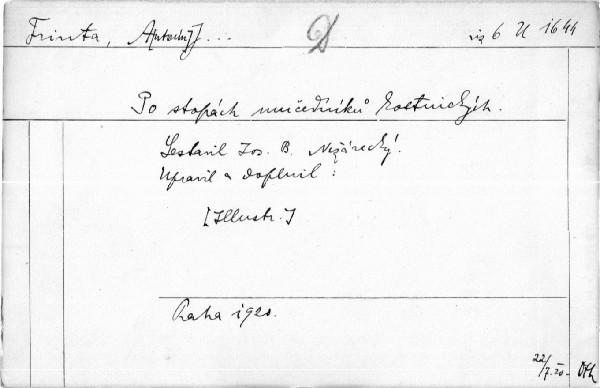 Frinta, A[ntonín] ... viz 6 U 1644
Po stopách mučedníků kostnických.
Sestavil Jos. B. Nežárecký.
Upravil a doplnil :
[Illustr.]
Praha 1920.
22/7. 20 -